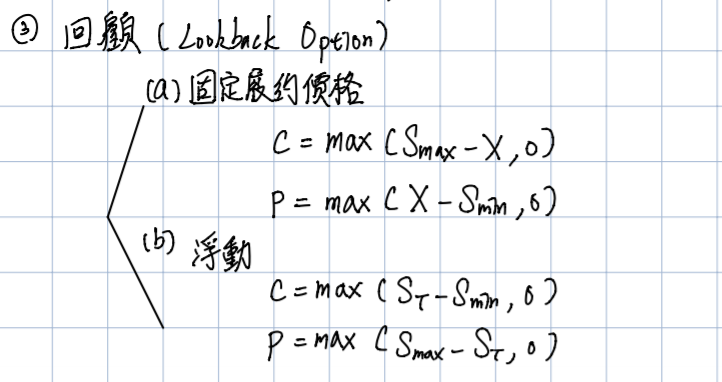 ③ 回顧 (Lookback Option)
(a) 固定履約價格
C = max (Smax - X, 0)
P = max (X - Smin, 0)
(b) 浮動
C = max (ST - Smin, 0)
P = max (Smax - ST, 0)